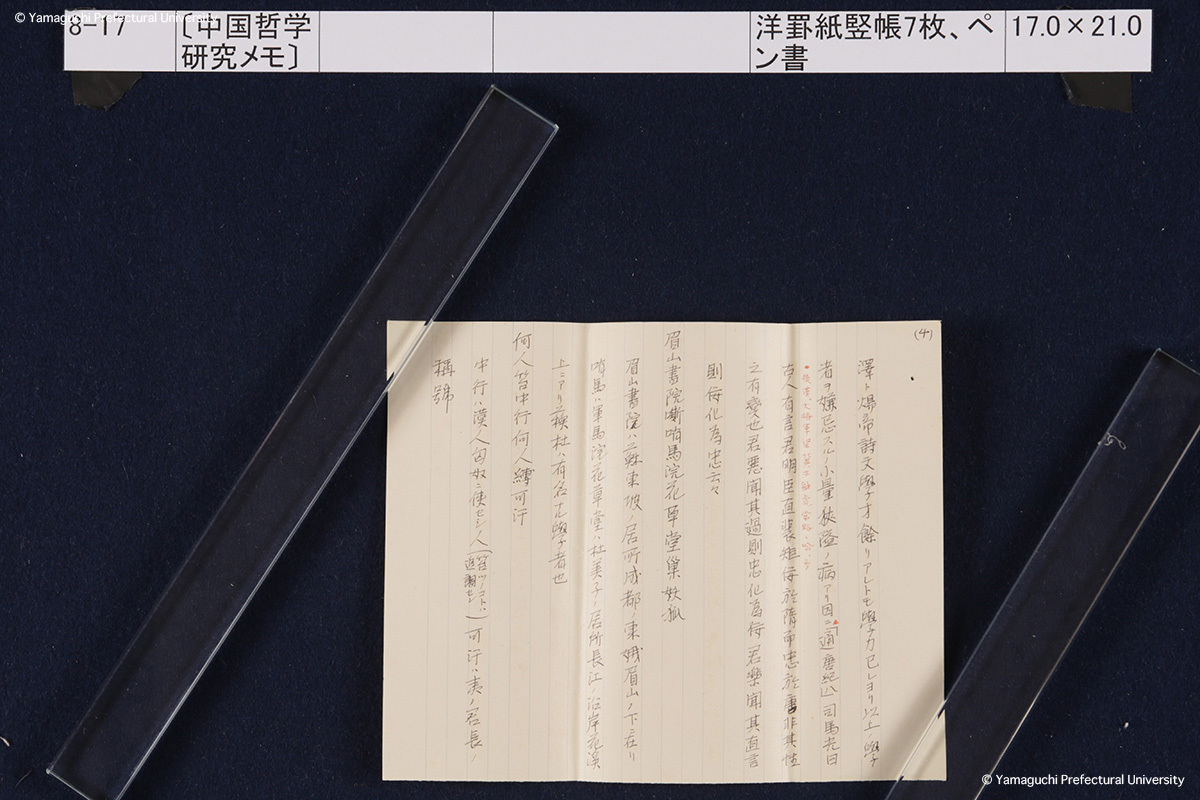 © Yamaguchi Prefectural University
8-17
〔中国哲学
研究メモ〕
洋罫紙竪帳7枚、ペ
ン書
17.0×21.0
(4)
澤ト煬帝詩文學才餘リアレトモ學力己レヨリ以上ノ學
者ヲ嫌忌スルノ小量狭隘ノ病アリ因ニ「通」唐紀八司馬光曰
古人有言君明臣直裴矩侫於隋而忠於唐非其性
之有變也君悪聞其過則忠化為侫君樂聞其直言
則侫化為忠云々
眉山書院嘶哨馬浣花草堂巢妖狐
眉山書院ハ三蘇東坡ノ居所成都ノ東娥眉山ノ下ニ在リ
哨馬ハ軍馬浣花草堂ハ杜美子ノ居所長江ノ沿岸花溪
上ニアリ二検杜ハ有名ナ學者也
何人笞中行何人縛可汗
中行ハ漢人匈奴ニ使セシ人(笞ツコトハ)可汗ハ夷ノ君長ノ
稱號
© Yamaguchi Prefectural University